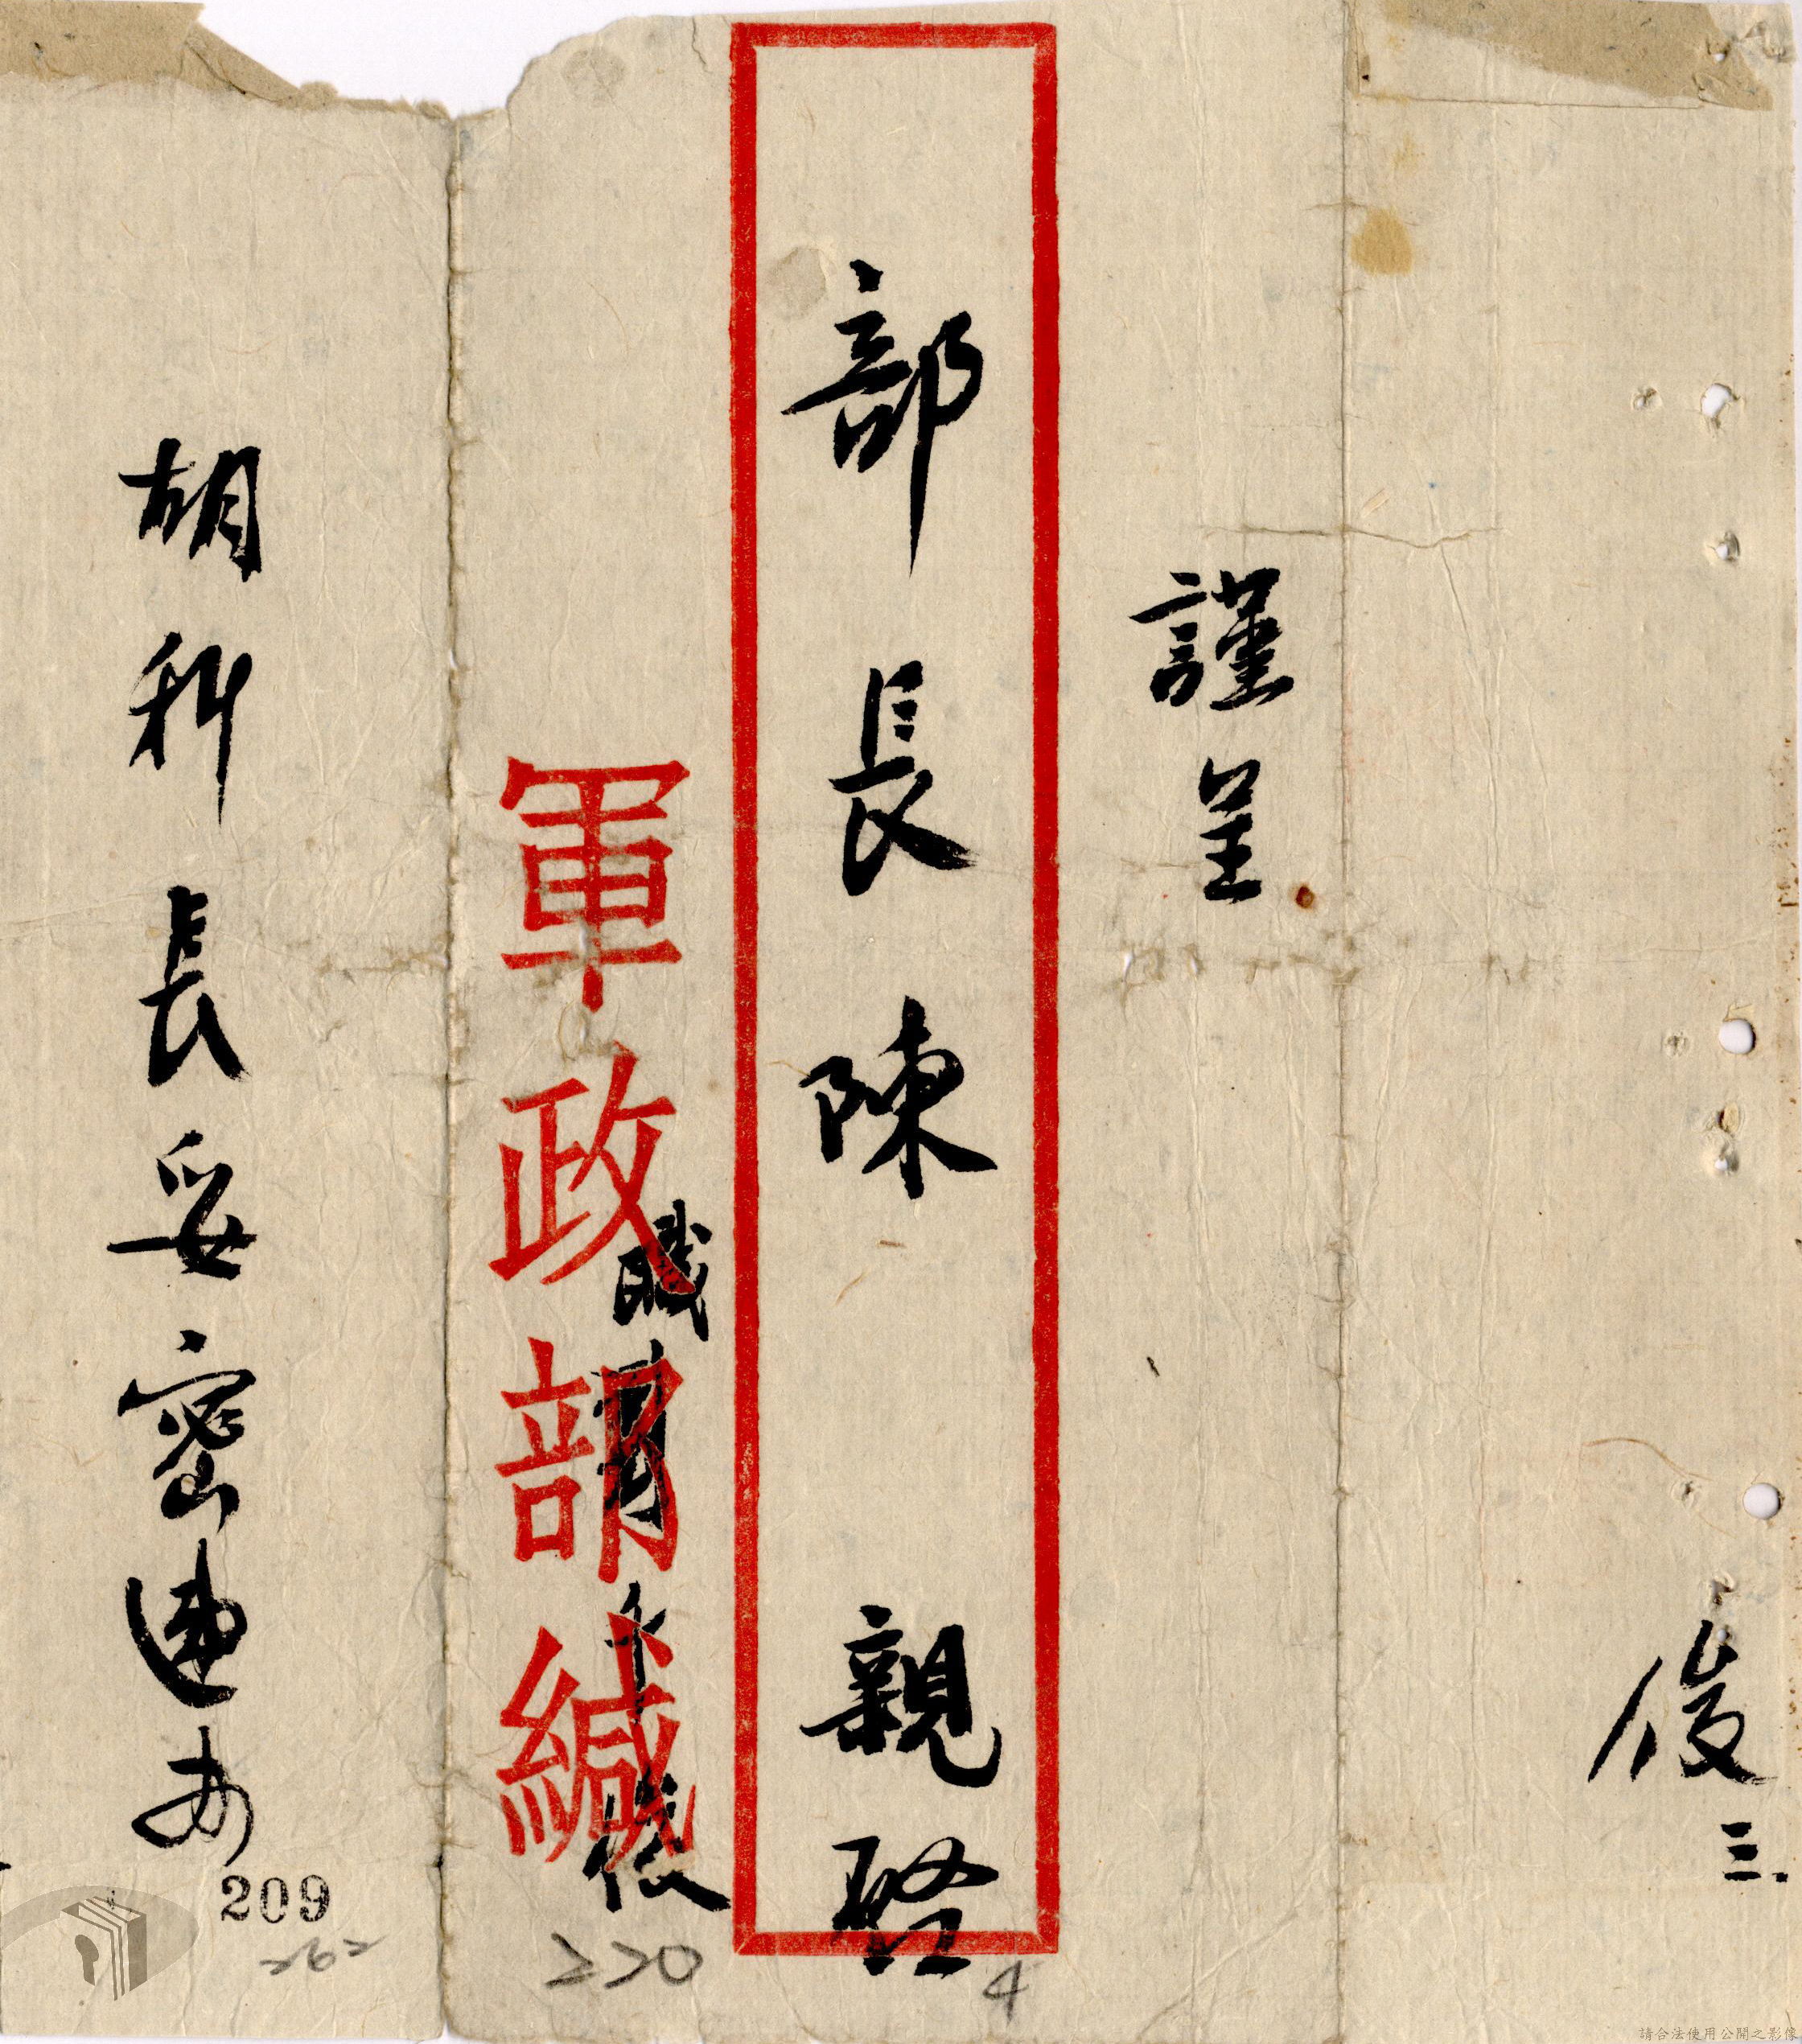 俊
三.
謹呈
部長陳 親啓
職
千俊
軍政部緘
胡科長妥密速办
209
262
220
4
請合法使用公開之影像